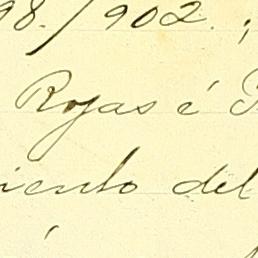 98./902.;
Rojas é
iento del